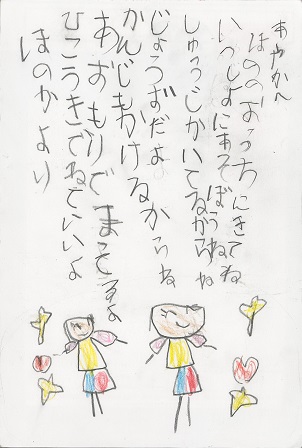 あやかへ
ほののおうちにきてね
いっしょにあそぼうね
しゅうじかいてるからね
じょうずだよ
かんじもかけるからね
あずもりでまってるよ
ひこうきでねていいよ
ほのかより